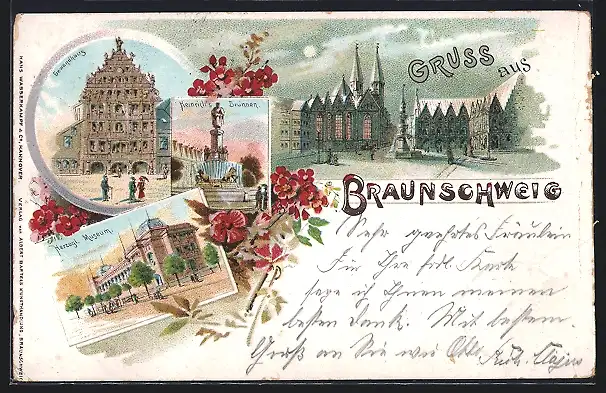 Gewandhaus
Heinrich's Brunnen.
Herzogl. Museum.
GRUSS aus
BRAUNSCHWEIG
Sehr geehrtes Fräulein
Für Ihre frdl. Karte
sage ich Ihnen meinen
besten Dank. Mit bestem
Gruß an Sie wie
HANS WASSERKAMPF & CO, HANNOVER
VERLAG VON ALBERT BARTELS KUNSTHANDLUNG, BRAUNSCHWEIG